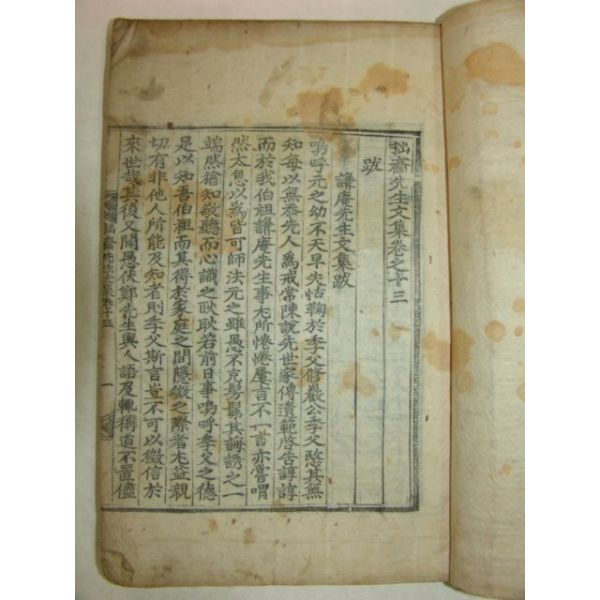 拙齋先生文集卷之十三
跋
謙庵先生文集跋
嗚呼元之幼不天早失怙鞠於季父修巖公季父愍其無
知每以無忝先人爲戒常陳說先世家傳遺範啓告諄諄
而於我伯祖謙庵先生事尤所惓惓屢言不一言亦嘗喟
然太息以爲皆可師法元之雖愚不克髣髴其誨誘之一
端然猶知敬聽而心識之耿耿若前日事嗚呼季父之德
足以知吾伯祖而其得於家庭之間隱微之際者尤益親
切有非他人所能及知者則季父斯言豈不可以徵信於
來世哉其後又聞愚伏鄭先生與人語及輒稱道不置儘
拙齋先生文集卷十三
一